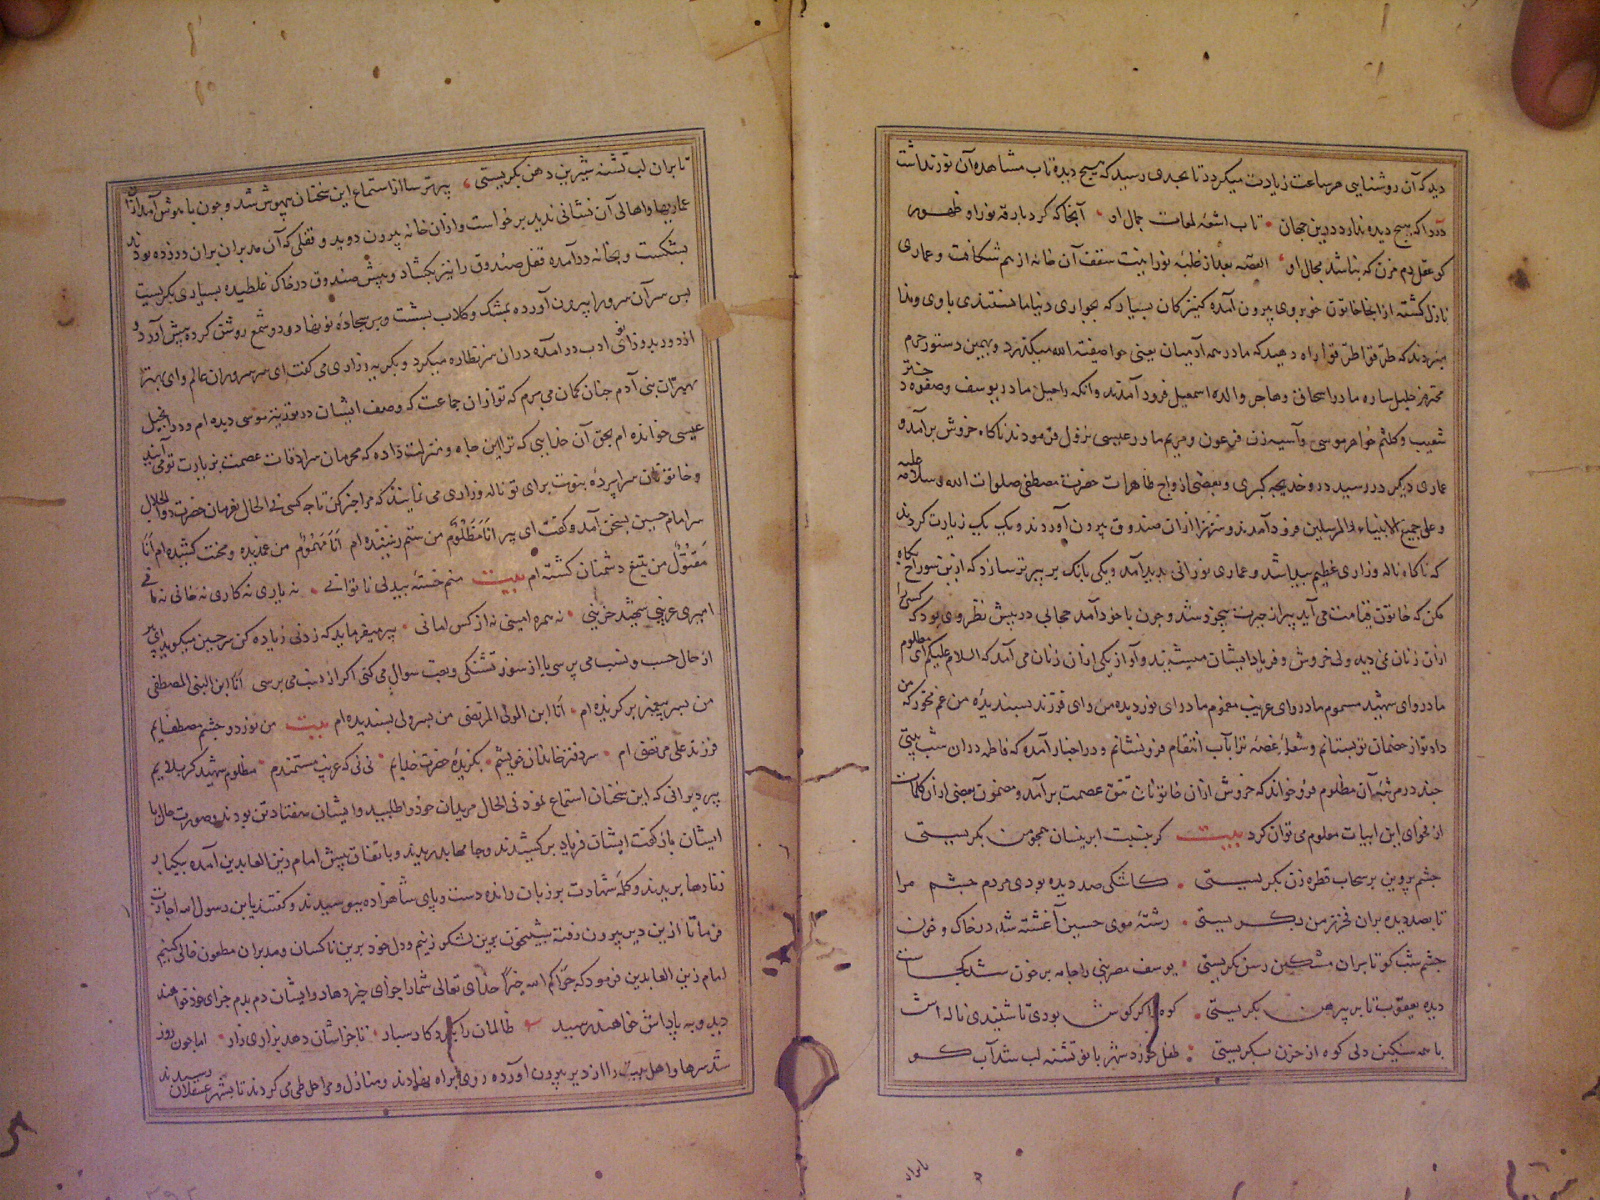 دید که آن روشنایی هر ساعت زیادت میکردد تا بحدی رسید که هیچ دیده تاب مشاهده آن نور نداشت
که هیچ دیده ندارد درین جهان تاب اشعهٔ لمعات جمال او آنجا که کرد بارقه نور او ظهور
کو عقل دم مزن که نباشد مجال او القصه بعد از غلبهٔ نورانیت سقف آن خانه از هم شکافت و عماری
نازل کشته از انجا خاتون خوبروی بیرون آمده کنیزکان بسیار که بجواری دنیا ما هستندی با وی و ندا
میزدند که طرّقوا طرّقوا راه دهید که مادر همه آدمیان یعنی حوا صفیة الله میکذرد و بهمین دستور حرم
محترم خلیل ساره مادر اسحاق و هاجر والدهٔ اسمعیل فرود آمدند وانکه راحیل مادر یوسف و صفوره دختر
شعیب و کلثم خواهر موسی و آسیه زن فرعون و مریم مادر عیسی نزول فرمودند ناکاه خروش برآمد و
عماری دیکر در رسید در و خدیجه کبری و بعضی ازواج طاهرات حضرت مصطفی صلوات الله و سلامه علیه
و علی جمیع الانبیاء والمرسلین فرود آمدند و سر را ازان صندوق بیرون آوردند و یک یک زیارت کردند
که ناکاه ناله و زاری عظیم پیدا شد و عماری نورانی پدید آمد و یکی بانک بر پیر ترسا زد که ازین سوراخ نکاه
مکن که خاتون قیامت می آید پیر از حیرت بیخود شد و چون با خود آمد حجابی در پیش نظر وی بود که کسی را
ازان زنان نمی دید ولی خروش و فریاد ایشان میشنید و آواز یکی ازان زنان می آمد که السلام علیکم ای مظلوم
مادر وای شهید مسموم مادر وای غریب مغموم مادر ای نور دیده من وای فرزند پسندیدهٔ من غم مخور که من
داد تو از خصمان تو بستانم و شعلهٔ غصه ترا بآب انتقام فرو نشانم و در اخبار آمده که فاطمه دران شب بیتی
چند در مرثیه آن مظلوم فرو خواند که خروش ازان خاتونان تتق عصمت برآمد و مضمون بعضی ازان کلمات
از فحوای این ابیات معلوم می توان کرد بیت کر بنسبت ابر نیسان همچو من بکریستی
چشم پروین بر سحاب قطره زن بکریستی کاشکی صد دیده بودی مردم چشم مرا
تا بصد دیده بران فخر زمن بکریستی رشتهٔ موی حسین آغشته شد در خاک و خون
چشم شب کو تا بران مشکین رسن بکریستی یوسف مصر نبی را جامه پر خون شد کجاست
دیده یعقوب تا بر پیرهن بکریستی کوه را کر کوش بودی تا شنیدی ناله اش
با همه سنکین دلی کوه از حزن بکریستی طفل خورد شهر بانو تشنه لب شد آب کو
تا بران
تا بران لب تشنه شیرین دهن بکریستی پیر ترسا از استماع این سخنان بیهوش شد و چون با هوش آمد ازان
عماریها و اهالی آن نشانی ندید برخواست و ازان خانه بیرون دوید و قفلی که آن مدبران بران در زده بودند
بشکست و بخانه درآمده قفل صندوق را نیز بکشاد و پیش صندوق در خاک غلطیده بسیاری بکریست
پس سر آن سرور را بیرون آورده بمشک و کلاب بشست و بر سجادهٔ نو نهاد و دو شمع روشن کرده پیش آورد و
از دور بدو زانوی ادب درآمده دران سر نظاره میکرد و بکریه و زاری می کفت ای سر سروران عالم وای بهتر
مهتران بنی آدم چنان کمان می برم که تو ازان جماعت که وصف ایشان در توریت موسی دیده ام و در انجیل
عیسی خوانده ام بحق آن خدایی که ترا این جاه و منزلت داده که محرمان سرادقات عصمت بزیارت تو می آیند
و خاتونان سراپردهٔ نبوت برای تو ناله و زاری می نمایند که مرا خبر کن تا چه کسی فی الحال بفرمان حضرت ذوالجلال
سر امام حسین بسخن آمد و کفت ای پیر انَا مَظْلُومٌ من ستم رسیده ام انَا مَهْمُومٌ من غمدیده و محنت کشیده ام انَا
مَقتُولٌ من بتیغ دشمنان کشته ام بیت منم خستهٔ بیدلی ناتوانی نه یاری نه کاری نه خانی نه مانی
اسیری غریبی شهید حزینی نه همره امینی نه از کس امانی پیر میفرماید که زدنی زیاده کن سر حسین میکوید ای پیر
از حال حسب و نسب می پرسی یا از سوز تشنکی و تعب سوال می کنی اکر از نسب می پرسی انا ابن النبی المصطفی
من پسر پیغمبر برکزیده ام انا ابن الولی المرتضی من پسر ولی پسندیده ام بیت من نور دو چشم مصطفایم
فرزند علی مرتضی ام سر دفتر خاندان قریشم بکزیدهٔ حضرت خدایم نی نی که غریب مستمندم مظلوم شهید کربلایم
پیر دیرانی که این سخنان استماع نمود فی الحال مریدان خود را طلبید و ایشان هفتاد تن بودند و صورت حال با
ایشان باز کفت ایشان فریاد برکشیدند و جامها بدریدند و باتفاق پیش امام زین العابدین آمده بیکبار
زنارها بریدند و کلمهٔ شهادت بر زبان رانده دست و پای شاهزاده ببوسیدند و کفتند یا ابن رسول الله اجازت
فرما تا ازین دیر بیرون رفته شبیخون برین لشکر زنیم و دل خود برین ناکسان و مدبران مطعون خالی کنیم
امام زین العابدین فرمود که جزاکم الله خیرًا خدای تعالی شما را جزای خیر دهاد و ایشان دم بدم جزای خود خواهند
دید و به پاداش خواهند رسید ظالمان را بکرد کار سپار تا جزاشان دهد بزاری زار اما چون روز
شد سرها و اهل بیت را از دیر بیرون آورده روی براه نهادند و منازل و مراحل طی می کردند تا بشهر عسقلان رسیدند